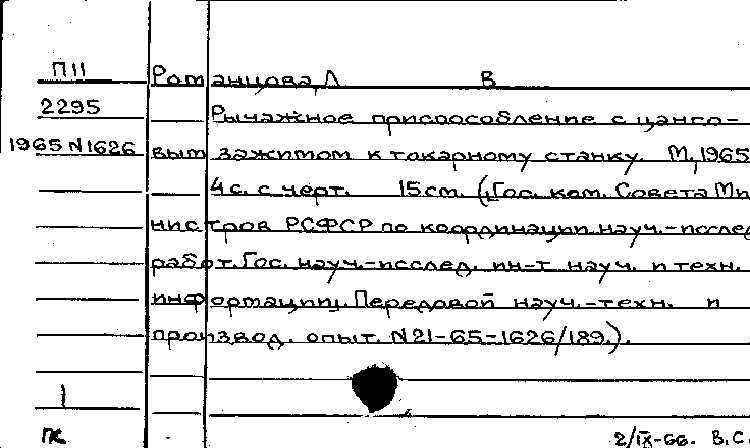 П11 Романцова, Л В
2295 Рычажное приспособление с цанго-
1965 N1626 вым зажимом к токарному станку. М., 1965
4с. с черт. 15см. (Гос. ком. Совета Ми-
нистров РСФСР по координации науч.-исслед
работ. Гос. науч.-исслед. ин-т науч. и техн.
информации. Передовой науч.-техн. и
производ. опыт. N21-65-1626/189.).
1
пк 2/IX-66. В.С.